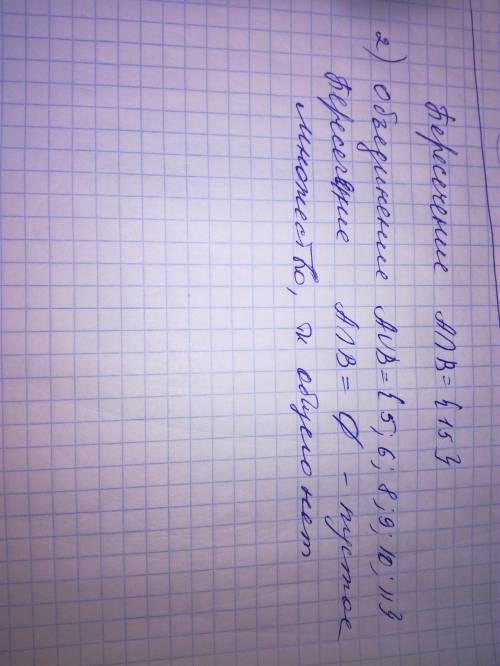 Пересечение A∩B={15}
2) Объединение A∪B={5;6;8;9;10;11}
Пересечение A∩B=∅ - пустое
множество, тк общего нет